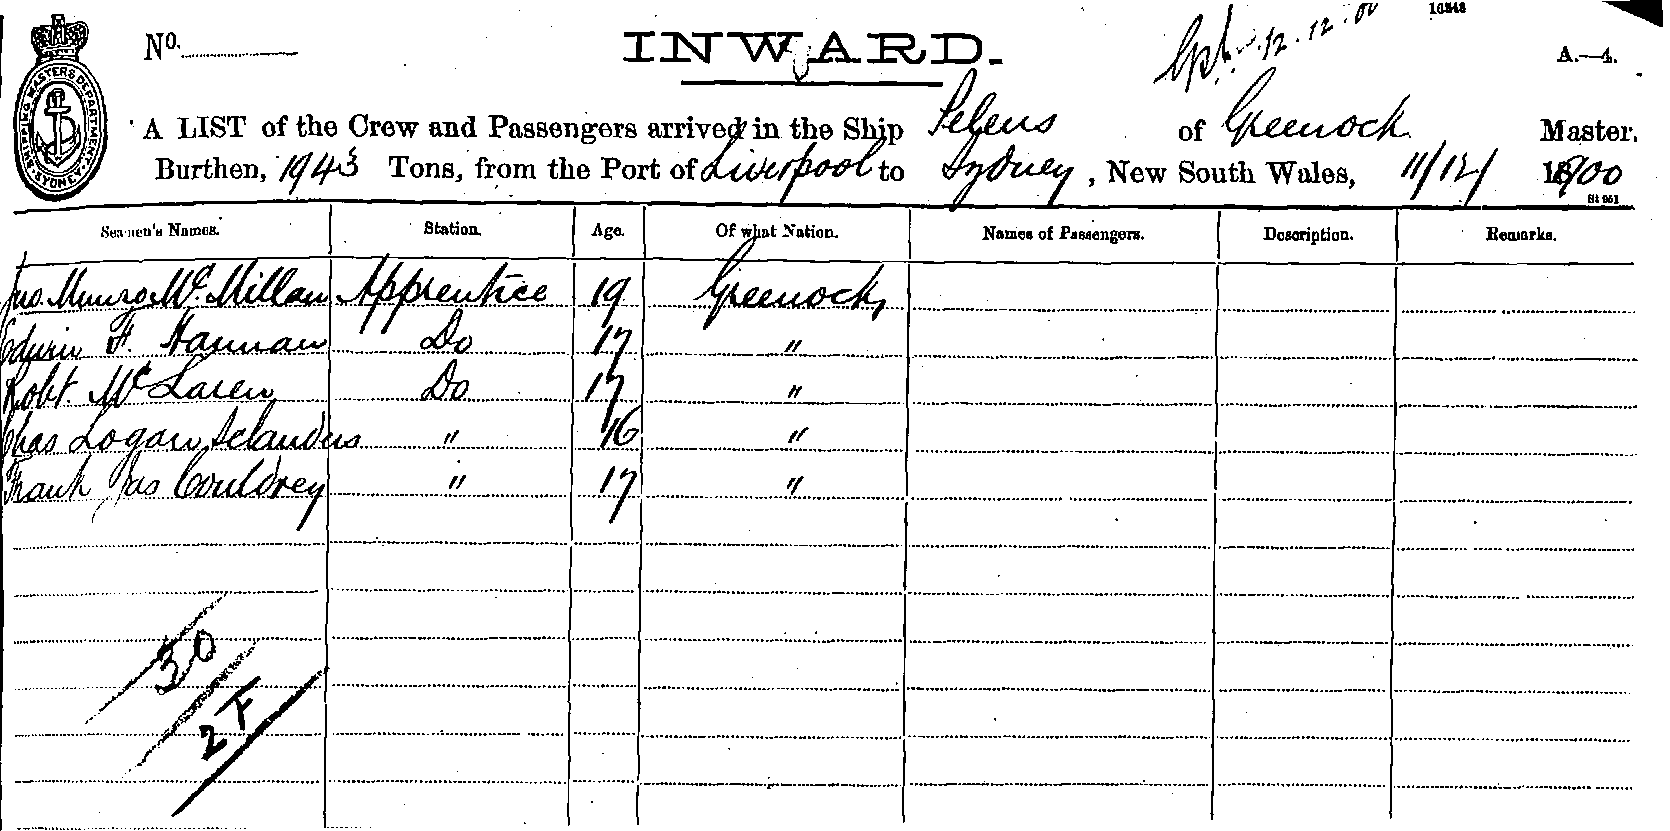 16348
No. INWARD. 12.12.00 A.—4.
SHIPPING MASTERS DEPARTMENT SYDNEY
A LIST of the Crew and Passengers arrived in the Ship Peleus of Greenock Master.
Burthen, 1943 Tons, from the Port of Liverpool to Sydney, New South Wales, 11/12/ 1900
St 951
Seamen's Names. Station. Age. Of what Nation. Names of Passengers. Description. Remarks.
Jno. Munro McMillan Apprentice 19 Greenock,
Edwin F. Hannan Do 17 "
Robt. McLaren Do 17 "
Chas Logan Selanders " 16 "
Frank Jas Couldrey " 17 "
30
27